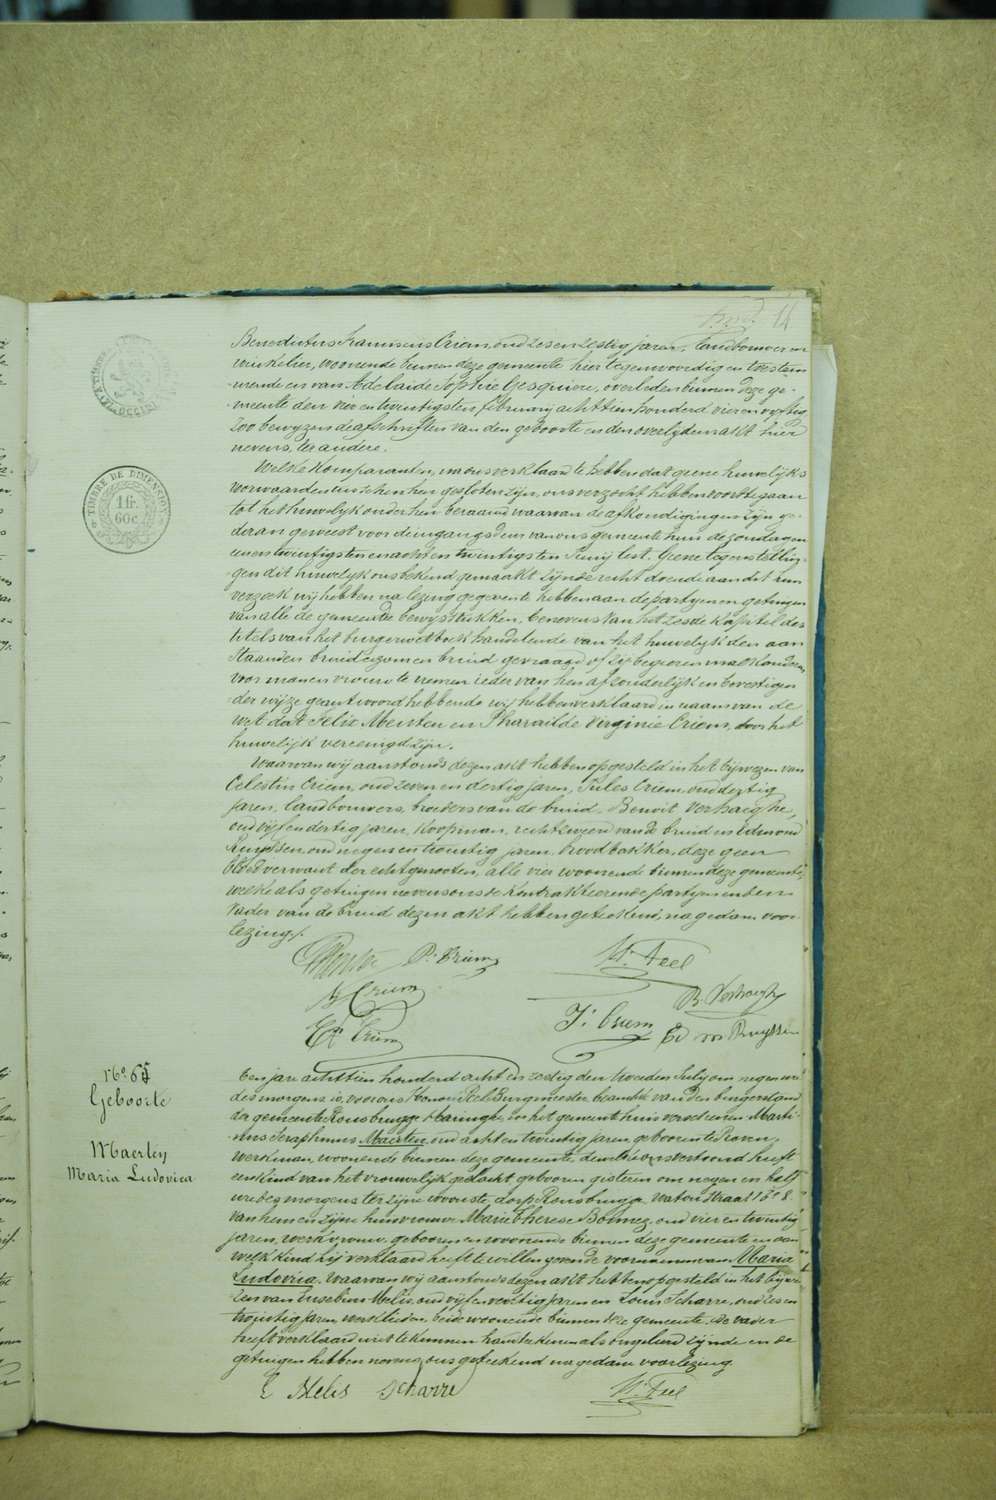 14
Benedictus Franciscus Criem, oud zes en zestig jaren, landbouwer en
winkelier, woonende binnen deze gemeente hier tegenwoordig en toestem-
mende en van Adelaïde Sophie Gesquiere, overleden binnen deze ge-
meente den vier en twintigsten february achttien honderd vier en vyftig
zoo bewyzen de afschriften van den geboorte en den overlydens akt hier
nevens, ter andere.
Welke komparanten, na ons verklaard te hebben dat geene huwelijks
voorwaarden tusschen hen gesloten zijn, ons verzocht hebben voort te gaan
tot het huwelijk onder hen beraamd waarvan de afkondigingen zijn ge-
daan geweest voor de ingangsdeur van ons gemeente huis de zondagen
eenen twintigsten en achtentwintigsten Junij lest. Geene tegenstellin-
gen dit huwelijk ons bekend gemaakt zijnde recht doende aan dit hun
verzoek wij hebben na lezing gegeven te hebben aan de partyen en getuigen
van alle de gemeende bewysstukken, benevens van het zesde kapittel des
titels van het burgerwetboek handelende van het huwelijk den aan
staanden bruidegom en bruid gevraagd of zij begeeren malkanderen
voor man en vrouw te nemen ieder van hen afzonderlijk en bevestigen
der wijze geantwoord hebbende wij hebben verklaard in naam van de
wet dat Felix Mersten en Pharaïlde Virginie Criem, door het
huwelijk vereenigd zijn.
Waarvan wij aanstonds dezen akt hebben opgesteld in het bijwezen van
Celestin Criem, oud zeven en dertig jaren, Jules Criem oud dertig
jaren, landbouwers, broeders van de bruid, Benoit Verhaeghe,
oud vijf en dertig jaren, koopman, rechtszweer van de bruid en Edmond
Ruyssen, oud negen en twintig jaren, broodbakker, deze geen
bloedverwant der echtgenooten, alle vier woonende binnen deze gemeente,
welke als getuigen nevens ons de kontrakteerende partyen en den
Vader van de bruid dezen akt hebben geteekend, na gedane voor-
lezing.
P. Criem
H. Feel
B. Criem
B. Verhaeghe
C. Criem
J. Criem
Ed van Ruyssen
TIMBRE DE DIMENSION
1 fr.
60 c.
N° 65
Geboorte
Maerten
Maria Ludovica
Een jare achttien honderd acht en zestig den tweeden July om negen ure
des morgens is voor ons Honoré Feel Burgmeester beambte van den burgerstand
der gemeente Rousbrugge Haringhe, in het gemeente huis verschenen Marti-
nus Seraphinus Maerten, oud acht en twintig jaren, geboren te Proven,
werkman, woonende binnen deze gemeente, dewelke ons vertoond heeft
een kind van het vrouwelijk geslacht geboren gisteren om negen en half
ure des morgens ter zijner woonste, dorp Rousbrugge, Waton straat N° 8.
van hem en zijne huisvrouw Marie Therese Bonnez, oud vier en twintig
jaren, werkvrouw, geboren en woonende binnen deze gemeente en aan
welk kind hij verklaard heeft te willen geven de voornamen van Maria
Ludovica. Waarvan wij aanstonds dezen akt hebben opgesteld in het bijwe-
zen van Eusebius Melis, oud vijf en veertig jaren en Louis Scharre, oud zes en
twintig jaren, werklieden, beide woonende binnen deze gemeente, de vader
heeft verklaard niet te kunnen handteekenen als ongeleerd zijnde en de
getuigen hebben nevens ons geteekend na gedane voorlezing.
E Melis
Scharre
H. Feel